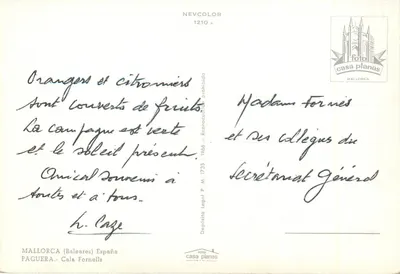 NEVCOLOR
1210 -
foto
casa planas
Orangers et citronniers
sont couverts de fruits.
La campagne est verte
et le soleil présent.
Amical souvenir à
toutes et à tous.
Madame Fornés
et ses collègues du
Secrétariat Général
MALLORCA (Baleares) España
PAGUERA.- Cala Fornells
casa planas